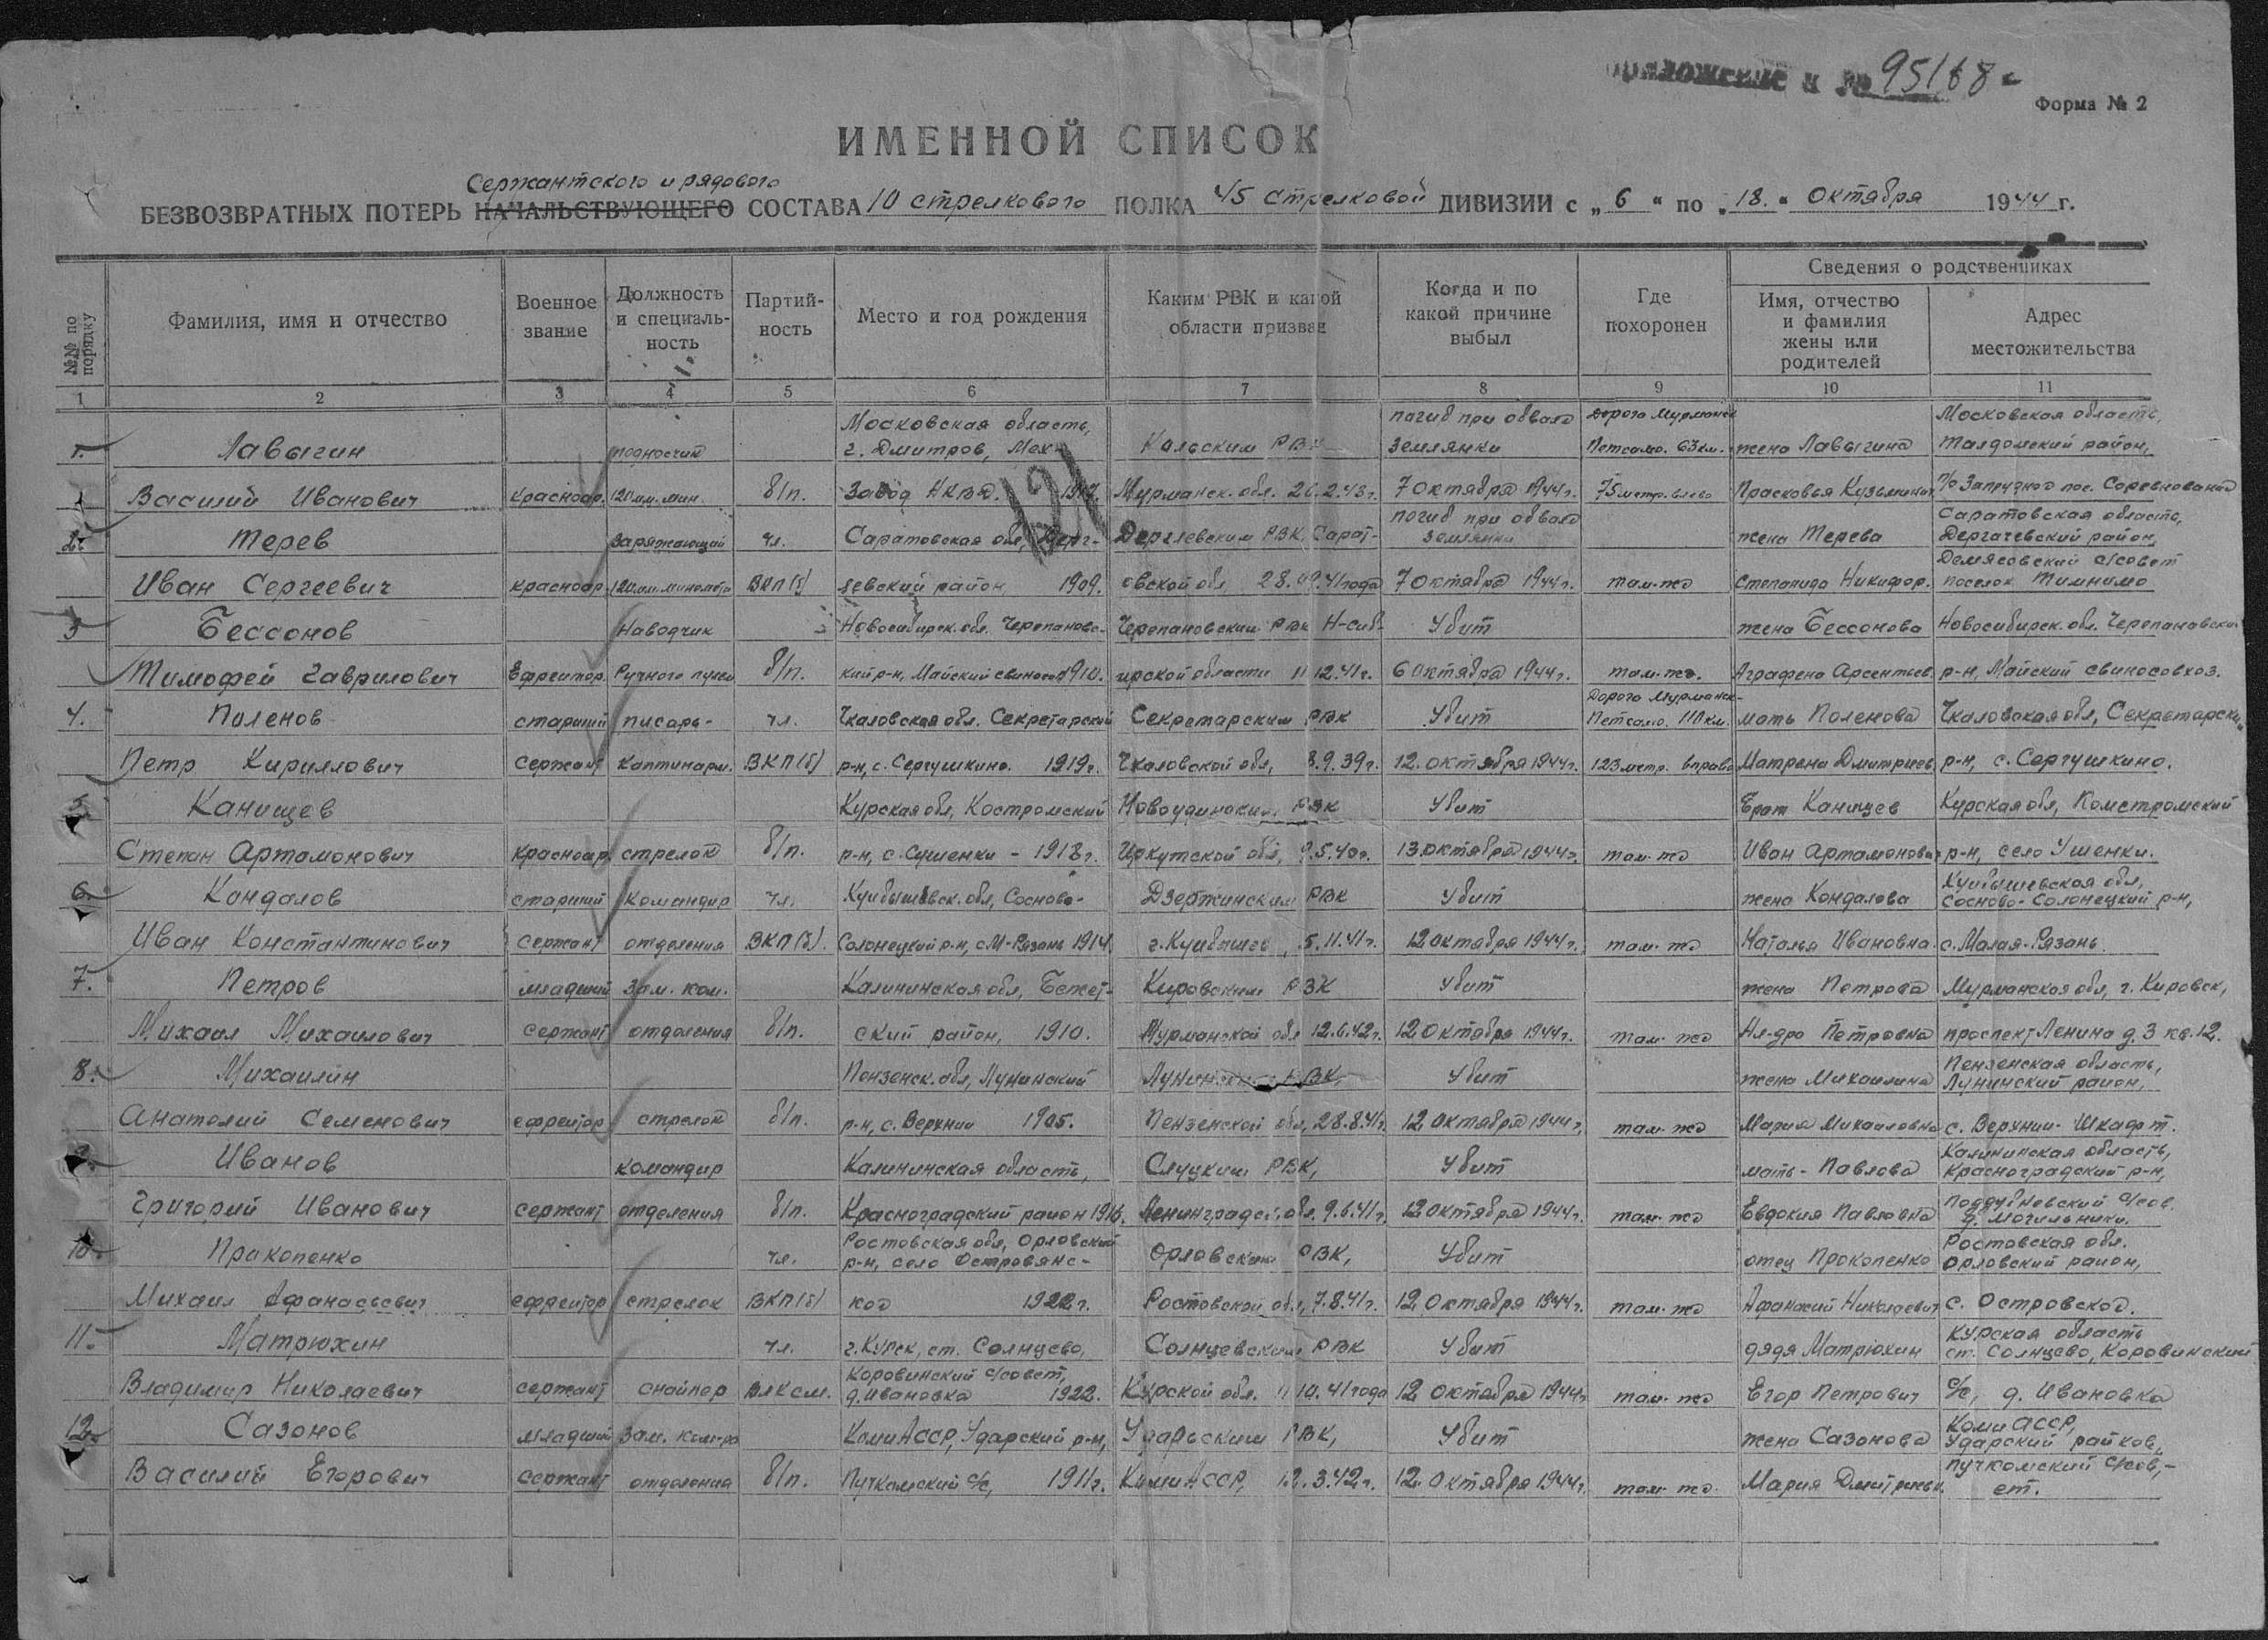 приложение к № 95168с
Форма № 2
ИМЕННОЙ СПИСОК
Сержантского и рядового
БЕЗВОЗВРАТНЫХ ПОТЕРЬ НАЧАЛЬСТВУЮЩЕГО СОСТАВА 10 стрелкового ПОЛКА 45 стрелковой ДИВИЗИИ с „ 6 “ по „ 18. “ Октября 1944 г.
№№ по порядку
Фамилия, имя и отчество
Военное звание
Должность и специальность
Партийность
Место и год рождения
Каким РВК и какой области призван
Когда и по какой причине выбыл
Где похоронен
Сведения о родственниках
Имя, отчество и фамилия жены или родителей
Адрес местожительства
1 2 3 4 5 6 7 8 9 10 11
121
Московская область, погиб при обвале Дорога Мурманск Московская область,
1. Лавыгин подносчик г. Дмитров, Мех. Кольским РВК землянки Петсамо. 63 км. жена Лавыгина Талдомский район,
Василий Иванович красноар. 120 мм. мин. б/п. Завод НКВД. Мурманск. обл. 7 октября 1944 г. 75 метр. влево Прасковья Кузьминич п/о Запрудноо пос. Соревнование
погиб при обвале Саратовская область,
Терев Заряжающий чл. Саратовская обл, Дерг- Дергачевским РВК, Сарат- землянки жена Терева Дергачевский район,
Демясовский с/совет
Иван Сергеевич красноар. 120 мм. миномета ВКП(б) чевский район 1909. овской обл 28.09.41 года 7 октября 1944 г. там-же Степанида Никифор. поселок Тимнимо
3 Бессонов Наводчик Новосибирск. обл. Черепановс- Черепановским РВК Н-сиб- Убит жена Бессонова Новосибирск. обл. Черепановский
Тимофей Гаврилович Ефрейтор Ручного пулем б/п. кий р-н, Майский свиносов 1910. ирской области 11 12.41 г. 6 октября 1944 г. там-же. Аграфена Арсентьев. р-н, Майский свиносовхоз.
Дорога Мурманск-
4. Поленов старший писарь- чл. Чкаловская обл. Секретарский Секретарским РВК Убит Петсамо. 110 км. мать Поленова Чкаловская обл, Секретарский
Петр Кириллович сержант каптинарм. ВКП(б) р-н, с. Сергушкино. 1919 г. Чкаловской обл, 8.9.39 г. 12. октября 1944 г. 123 метр. вправо Матрена Дмитриев. р-н, с. Сергушкино.
5 Канищев Курская обл, Костромский РВК Убит брат Канищев Курская обл, Комстромский
Степан Артамонович красноар. стрелок б/п. р-н, с. Сушенки - 1918 г. Иркутской обл, 9.5.40 г. 13. октября 1944 г. там-же Иван Артамонович р-н, село Ушенки.
Куйбышевская обл,
6. Кандалов старший командир чл. Куйбышевск. обл, Сосново- Дзержинским РВК Убит жена Кондалова Сосново-Солонецкий р-н,
Иван Константинович сержант отделения ВКП(б). Солонецкий р-н, с М-Рязань 1914 г. Куйбышев, 5.11.41 г. 12 октября 1944 г. там-же Наталья Ивановна с. Малая-Рязань.
7. Петров младший зам. ком. Калининская обл, Бежет- Кировским РВК Убит жена Петрова Мурманская обл, г. Кировск,
Михаил Михаилович сержант отделения б/п. ский район, 1910. Мурманской обл 12.6.42 г. 12 октября 1944 г. там-же Ал-дра Петровна проспект Ленина д. 3 кв. 12.
Пензенская область,
8. Михаилин Пензенск. обл, Лунинский РВК, Убит жена Михаилина Лунинский район,
Анатолий Семенович ефрейтор стрелок б/п. р-н, с. Верхний 1905. Пензенской обл, 28.8.41 г. 12 октября 1944 г. там-же Мария Михаиловна с. Верхний-Шкафт.
Калининская область,
9. Иванов командир Калининская область, Слуцким РВК, Убит мать - Павлова Красноградский р-н,
Поддубновский с/сов.
Григорий Иванович сержант отделения б/п. Красноградский район 1916. Ленинградс. обл, 9.6.41 г. 12 октября 1944 г. там-же Евдокия Павловна д. Могильники.
Ростовская обл, Орловский Ростовская обл.
10. Пракопенко чл. р-н, село Островянс- Орловским РВК, Убит отец Прокопенко Орловский район,
Михаил Афанасьевич ефрейтор стрелок ВКП(б) кое 1922 г. Ростовской обл, 7.8.41 г. 12 Октября 1944 г. там-же Афанасий Николаевич с. Островское.
Курская область
11. Матрюхин чл. г. Курск, ст. Солнцево, Солнцевским РВК Убит дядя Матрюхин ст. Солнцево, Коровинский
Коровинский с/совет,
Владимир Николаевич сержант снайпер ВЛКСМ. д. Ивановка 1922. Курской обл. 11 10.41 года 12 октября 1944 г. там-же Егор Петрович с/с, д. Ивановка
Коми АССР,
12. Сазонов младший Зам. ком-ра Коми АССР, Ударский р-н, Ударским РВК, Убит жена Сазонова Ударский район,
Пучкомский с/сов,-
Василий Егорович сержант отделения б/п. Пучкомский с/с, 1911 г. Коми АССР, 12.3.42 г. 12. Октября 1944 г. там-же Мария Дмитриевн. ет.